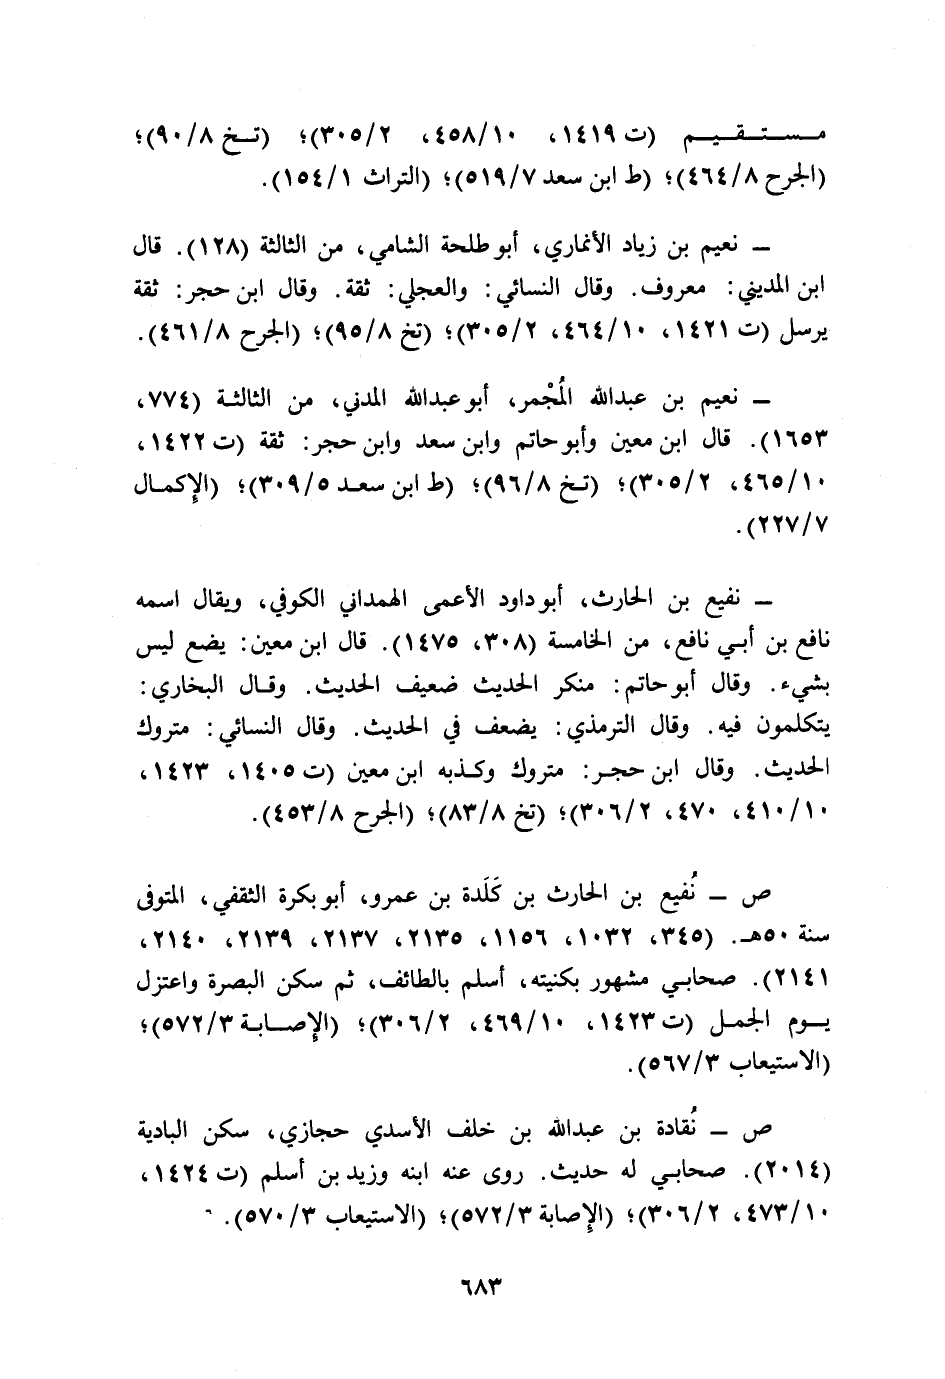 مستقيم (ت ١٤١٩، ٤٥٨/١٠، ٣٠٥/٢)؛ (تخ ٩٠/٨)؛
(الجرح ٤٦٤/٨)؛ (ط ابن سعد ٥١٩/٧)؛ (التراث ١٥٤/١).
ــ نعيم بن زياد الأنماري، أبو طلحة الشامي، من الثالثة (١٢٨). قال
ابن المديني: معروف. وقال النسائي: والعجلي: ثقة. وقال ابن حجر: ثقة
يرسل (ت ١٤٢١، ٤٦٤/١٠، ٣٠٥/٢)؛ (تخ ٩٥/٨)؛ (الجرح ٤٦١/٨).
ــ نعيم بن عبدالله المُجْمر، أبو عبدالله المدني، من الثالثة (٧٧٤،
١٦٥٣). قال ابن معين وأبو حاتم وابن سعد وابن حجر: ثقة (ت ١٤٢٢،
٤٦٥/١٠، ٣٠٥/٢)؛ (تخ ٩٦/٨)؛ (ط ابن سعد ٣٠٩/٥)؛ (الإكمال
٢٢٧/٧).
ــ نفيع بن الحارث، أبو داود الأعمى الهمداني الكوفي، ويقال اسمه
نافع بن أبي نافع، من الخامسة (٣٠٨، ١٤٧٥). قال ابن معين: يضع ليس
بشيء. وقال أبو حاتم: منكر الحديث ضعيف الحديث. وقال البخاري:
يتكلمون فيه. وقال الترمذي: يضعف في الحديث. وقال النسائي: متروك
الحديث. وقال ابن حجر: متروك وكذبه ابن معين (ت ١٤٠٥، ١٤٢٣،
٤١٠/١٠، ٤٧٠، ٣٠٦/٢)؛ (تخ ٨٣/٨)؛ (الجرح ٤٥٣/٨).
ص ــ نُفيع بن الحارث بن كَلَدة بن عمرو، أبو بكرة الثقفي، المتوفى
سنة ٥٠هـ. (٣٤٥، ١٠٣٢، ١١٥٦، ٢١٣٥، ٢١٣٧، ٢١٣٩، ٢١٤٠،
٢١٤١). صحابي مشهور بكنيته، أسلم بالطائف، ثم سكن البصرة واعتزل
يوم الجمل (ت ١٤٢٣، ٤٦٩/١٠، ٣٠٦/٢)؛ (الإصابة ٥٧٢/٣)؛
(الاستيعاب ٥٦٧/٣).
ص ــ نُقادة بن عبدالله بن خلف الأسدي حجازي، سكن البادية
(٢٠١٤). صحابي له حديث. روى عنه ابنه وزيد بن أسلم (ت ١٤٢٤،
٤٧٣/١٠، ٣٠٦/٢)؛ (الإصابة ٥٧٢/٣)؛ (الاستيعاب ٥٧٠/٣).
٦٨٣